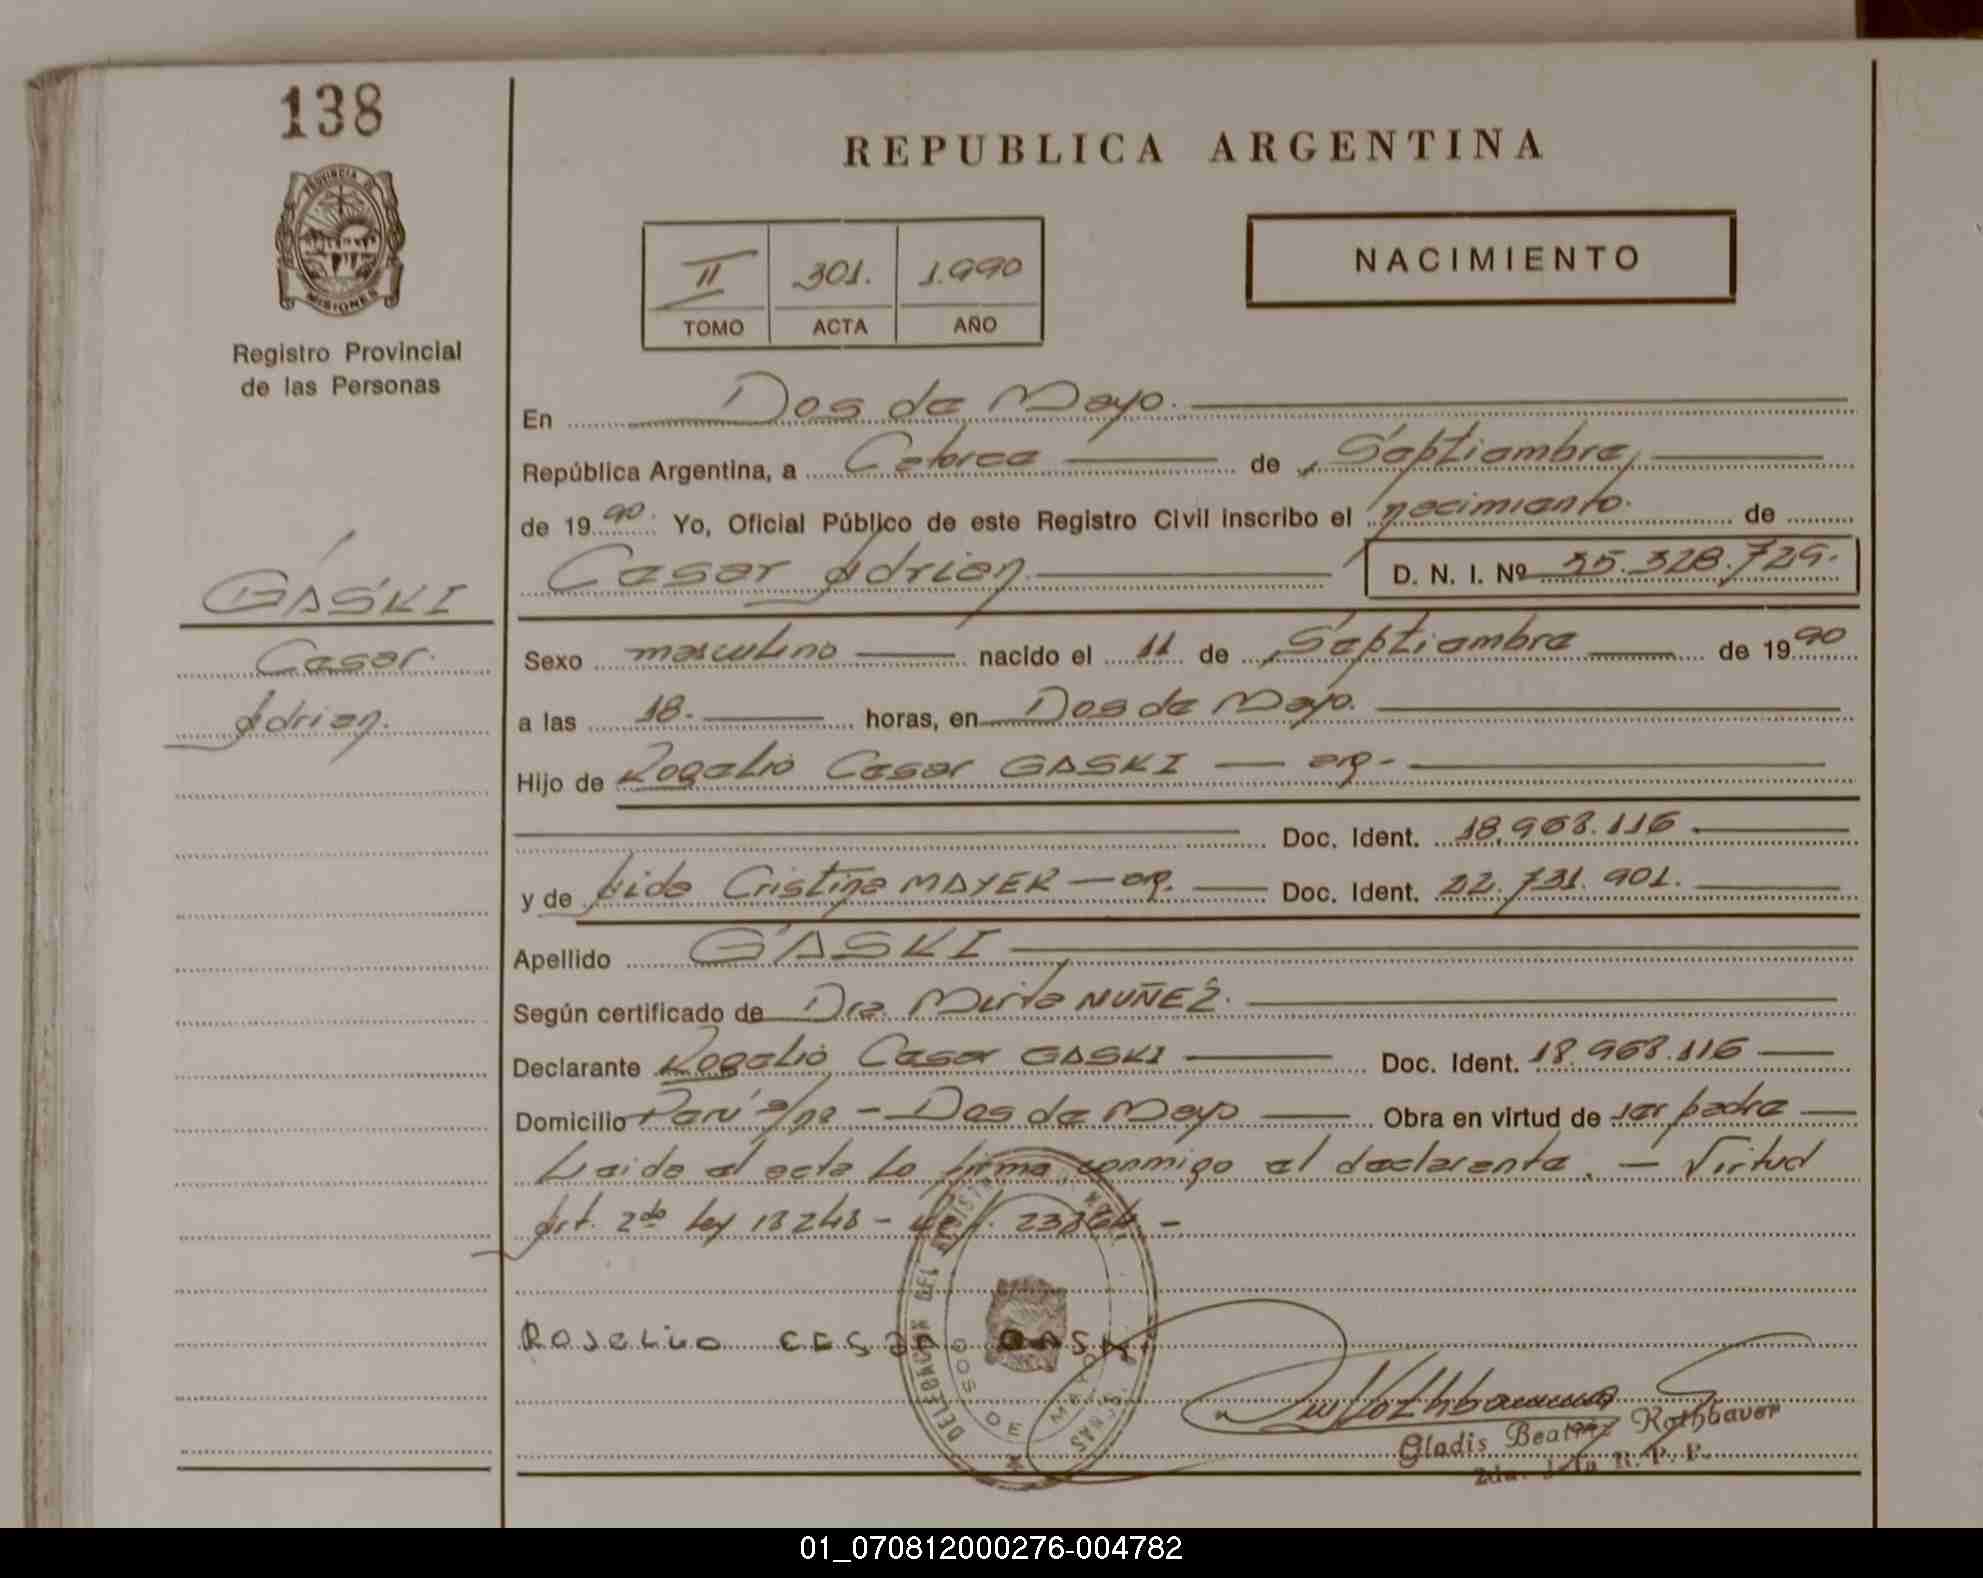 138
PROVINCIA DE
MISIONES
Registro Provincial
de las Personas
REPUBLICA ARGENTINA
II 301. 1.990
TOMO ACTA AÑO
NACIMIENTO
En Dos de Mayo.
República Argentina, a Catorce de Septiembre
de 1990. Yo, Oficial Público de este Registro Civil inscribo el nacimiento. de
Cesar Adrian D. N. I. Nº 35.328.729.
GASKI
Cesar
Adrian.
Sexo masculino nacido el 11 de Septiembre de 1990
a las 18. horas, en Dos de Mayo.
Hijo de Rogelio Cesar GASKI — arg-
Doc. Ident. 18.968.116
y de Lida Cristina MAYER — arg. Doc. Ident. 22.731.901.
Apellido GASKI
Según certificado de Dra. Mirta NUÑEZ.
Declarante Rogelio Cesar GASKI Doc. Ident. 18.968.116
Domicilio - Dos de Mayo Obra en virtud de ser padre
Leida el acta lo firma conmigo el declarante. — Virtud
Art. 2do Ley 18248 -
ROJELIO CESAR GASKI
DELEGACION DEL REGISTRO
DOS DE MAYO
Gladis Beatriz Rothbauer
R. P. P.
01_070812000276-004782